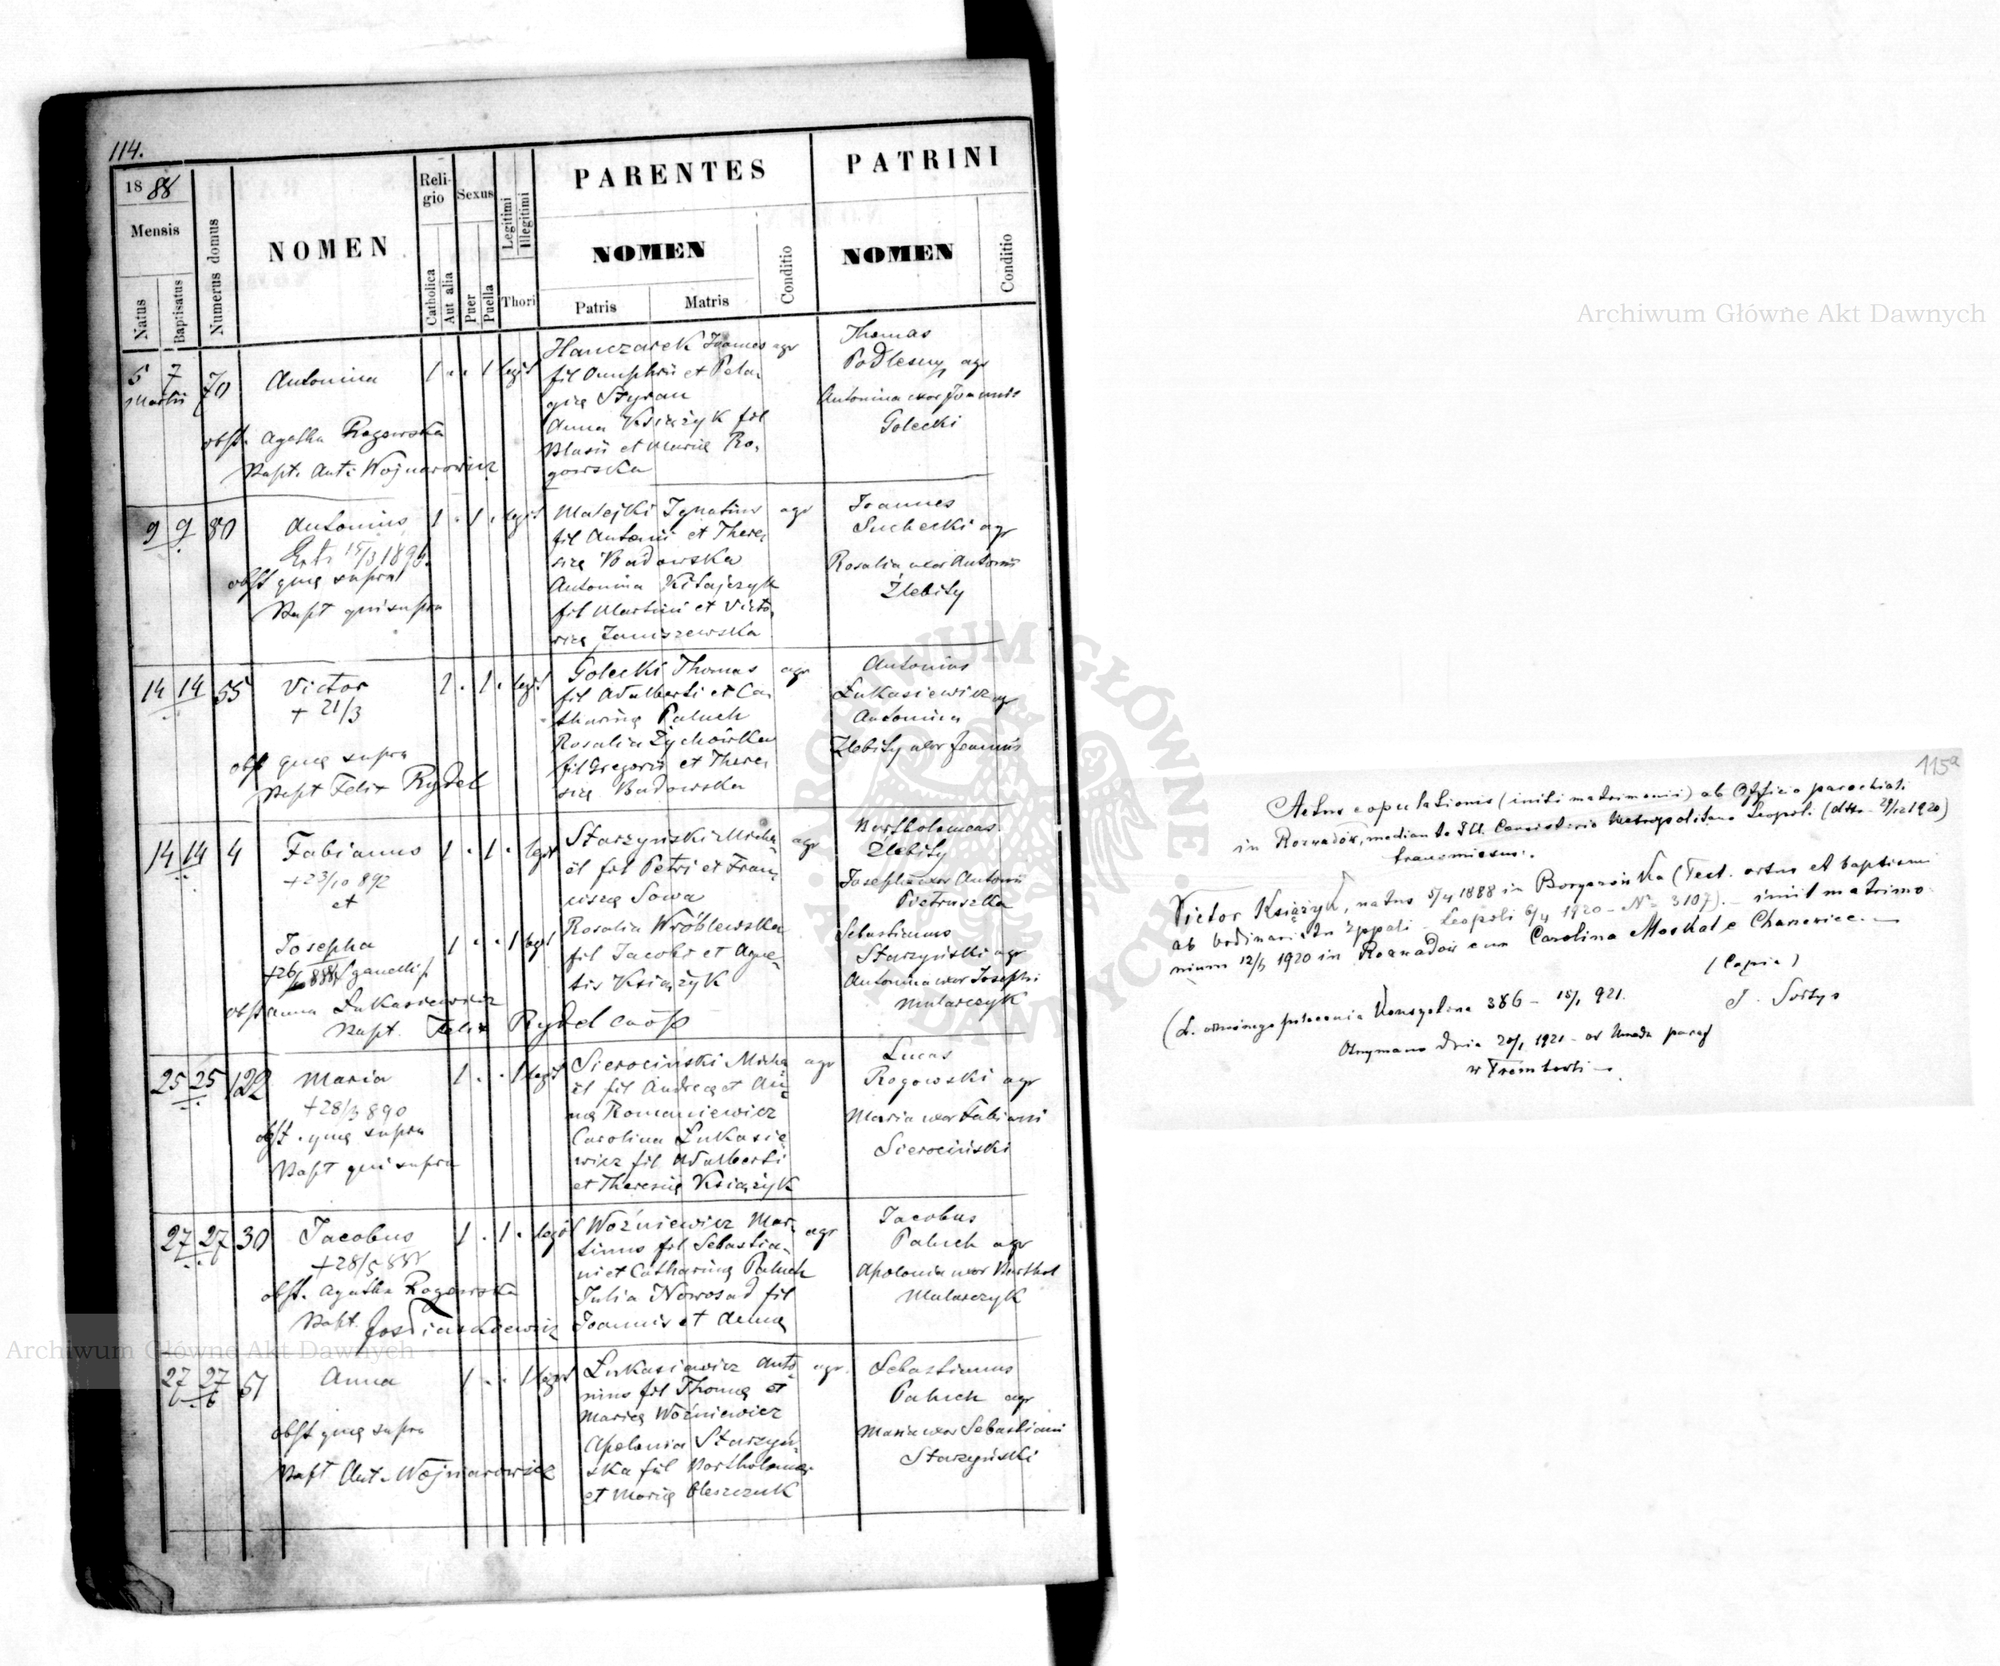 114.
18 88
Mensis
Natus
Baptisatus
Numerus domus
NOMEN
Religio
Catholica
Aut alia
Sexus
Puer
Puella
Legitimi
Illegitimi
Thori
PARENTES
NOMEN
Patris
Matris
Conditio
PATRINI
NOMEN
Conditio
5 7 70 Antonina 1 . . 1 legit
Martii
obst. Agatha Rogowska
Bapt. Ant. Wojnarowicz
Hanczarek Joannes agr
fil Onuphrii et Pela-
gię Styran
Anna Książyk fil
Blasii et Marię Ro-
gowska
Thomas
Podlesny agr
Antonina uxor Joannis
Golecki
9 9 80 Antonius 1 . 1 . legit
15/3 1896
obst quę supra
Bapt qui supra
Matejki Ignatius agr
fil Antonii et There-
się Badowska
Antonina Kitajczyk
fil Martini et Victo-
rię Janiszewska
Joannes
Suchecki agr
Rosalia uxor Antonii
Żlebity
14 14 55 Victor 1 . 1 . legit
+ 21/3
obst quę supra
Bapt Felix Rydel
Golecki Thomas agr
fil Adalberti et Ca-
tharinę Paluch
Rosalia Zychówka
fil Gregorii et There-
się Badowska
Antonius
Łukasiewicz agr
Antonina
Zlebity uxor Joannis
14 14 4 Fabianus 1 . 1 . legit
+ 23/10 892
et
Josepha 1 . . 1 legit
obst Anna Łukasiewicz
Bapt. Felix Rydel coop
Starzyński Micha- agr
ël fil Petri et Fran-
ciszę Sowa
Rosalia Wróblewska
fil Jacobi et Agne-
tis Książyk
Bartholomeus
Zlebity
Josepha uxor Antonii
Pietruszka
Sebastianus
Starzyński agr
Antonina uxor Josephi
Mularczyk
25 25 122 Maria 1 . . 1 legit
+28/3 890
obst. quę supra
Bapt qui supra
Sierociński Micha- agr
ël fil Andreę et An-
nę Romaniewicz
Carolina Łukasie-
wicz fil Adalberti
et Theresię Książyk
Lucas
Rogowski agr
Maria uxor Fabiani
Sierociński
27 27 30 Jacobus 1 . 1 . legit
+28/5 888
obst. Agatha Rogowska
Bapt.
Woźniewicz Mar- agr
tinus fil Sebastia-
ni et Catharinę Paluch
Julia Nowosad fil
Joannis et Annę
Jacobus
Paluch agr
Apolonia uxor Barthol
Mularczyk
27 27 51 Anna 1 . . 1 legit
obst quę supra
Bapt Ant. Wojnarowicz
Łukasiewicz Anto- agr.
nius fil Thomę et
Marię Woźniewicz
Apolonia Starzyń-
ska fil Bartholomei
et Marię Oleszczuk
Sebastianus
Paluch agr
Maria uxor Sebastiani
Starzyński
115a
Actus copulationis (initi matrimonii) ab Officio parochiali
in Rozwadów, mediante Ill. Consistorio Metropolitano Leopoli. (dtto - 29/12 1920)
transmissus.
Victor Książyk, natus 5/4 1888 in Borynówka (Test. ortus et baptismi
ab Ordinariatu Leopoli 6/4 1920 - No 3107). - iniit matrimo-
nium 12/5 1920 in Rozwadów cum Carolina Moskal e Charzewice. -
(Copia)
J. Sołtys
Konsystorza 386 - 15/1 921.
Otrzymano dnia 20/1 1921 - od Urzędu paraf
w Trembowli -
Archiwum Główne Akt Dawnych
Archiwum Główne Akt Dawnych
ARCHIWUM GŁÓWNE AKT DAWNYCH